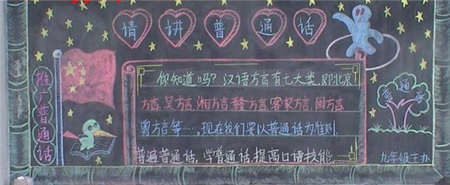 请讲普通话
推广普通话
你知道吗?汉语方言有七大类,即北京
方言,吴方言,湘方言,赣方言,客家方言,闽方言
粤方言等…,现在我们要以普通话为准则,
普遍普通话,学普通话,提高口语技能
普通
九年级主办